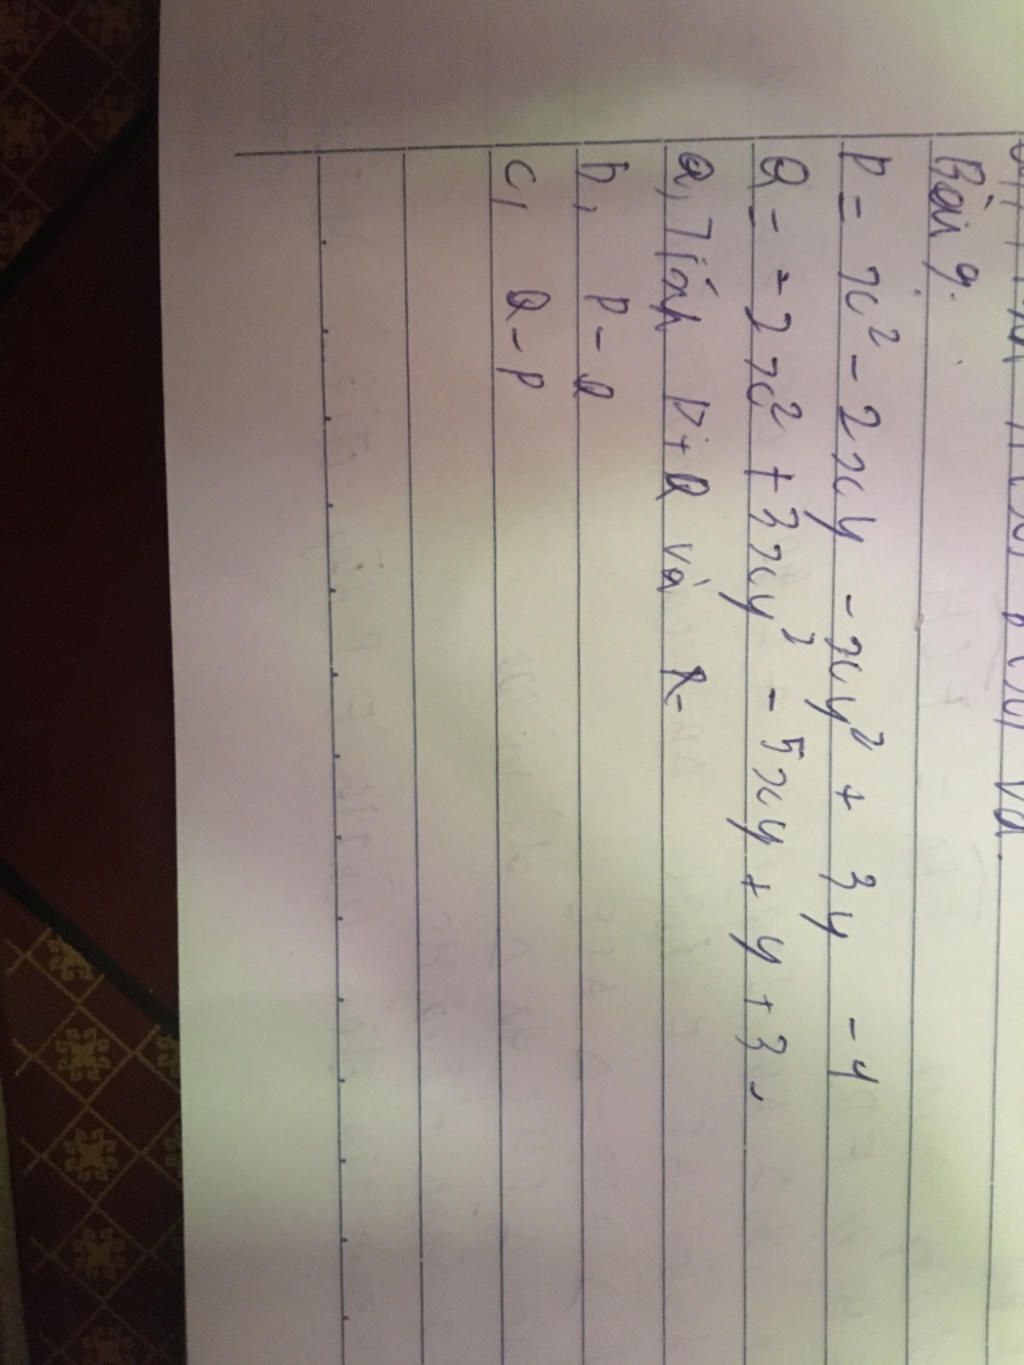 Bài 9.
P = x² - 2xy - xy² + 3y - 1
Q = - 2x² + 3xy² - 5xy + y + 3,
a, Tính P + Q và R -
b, P - Q
c, Q - P